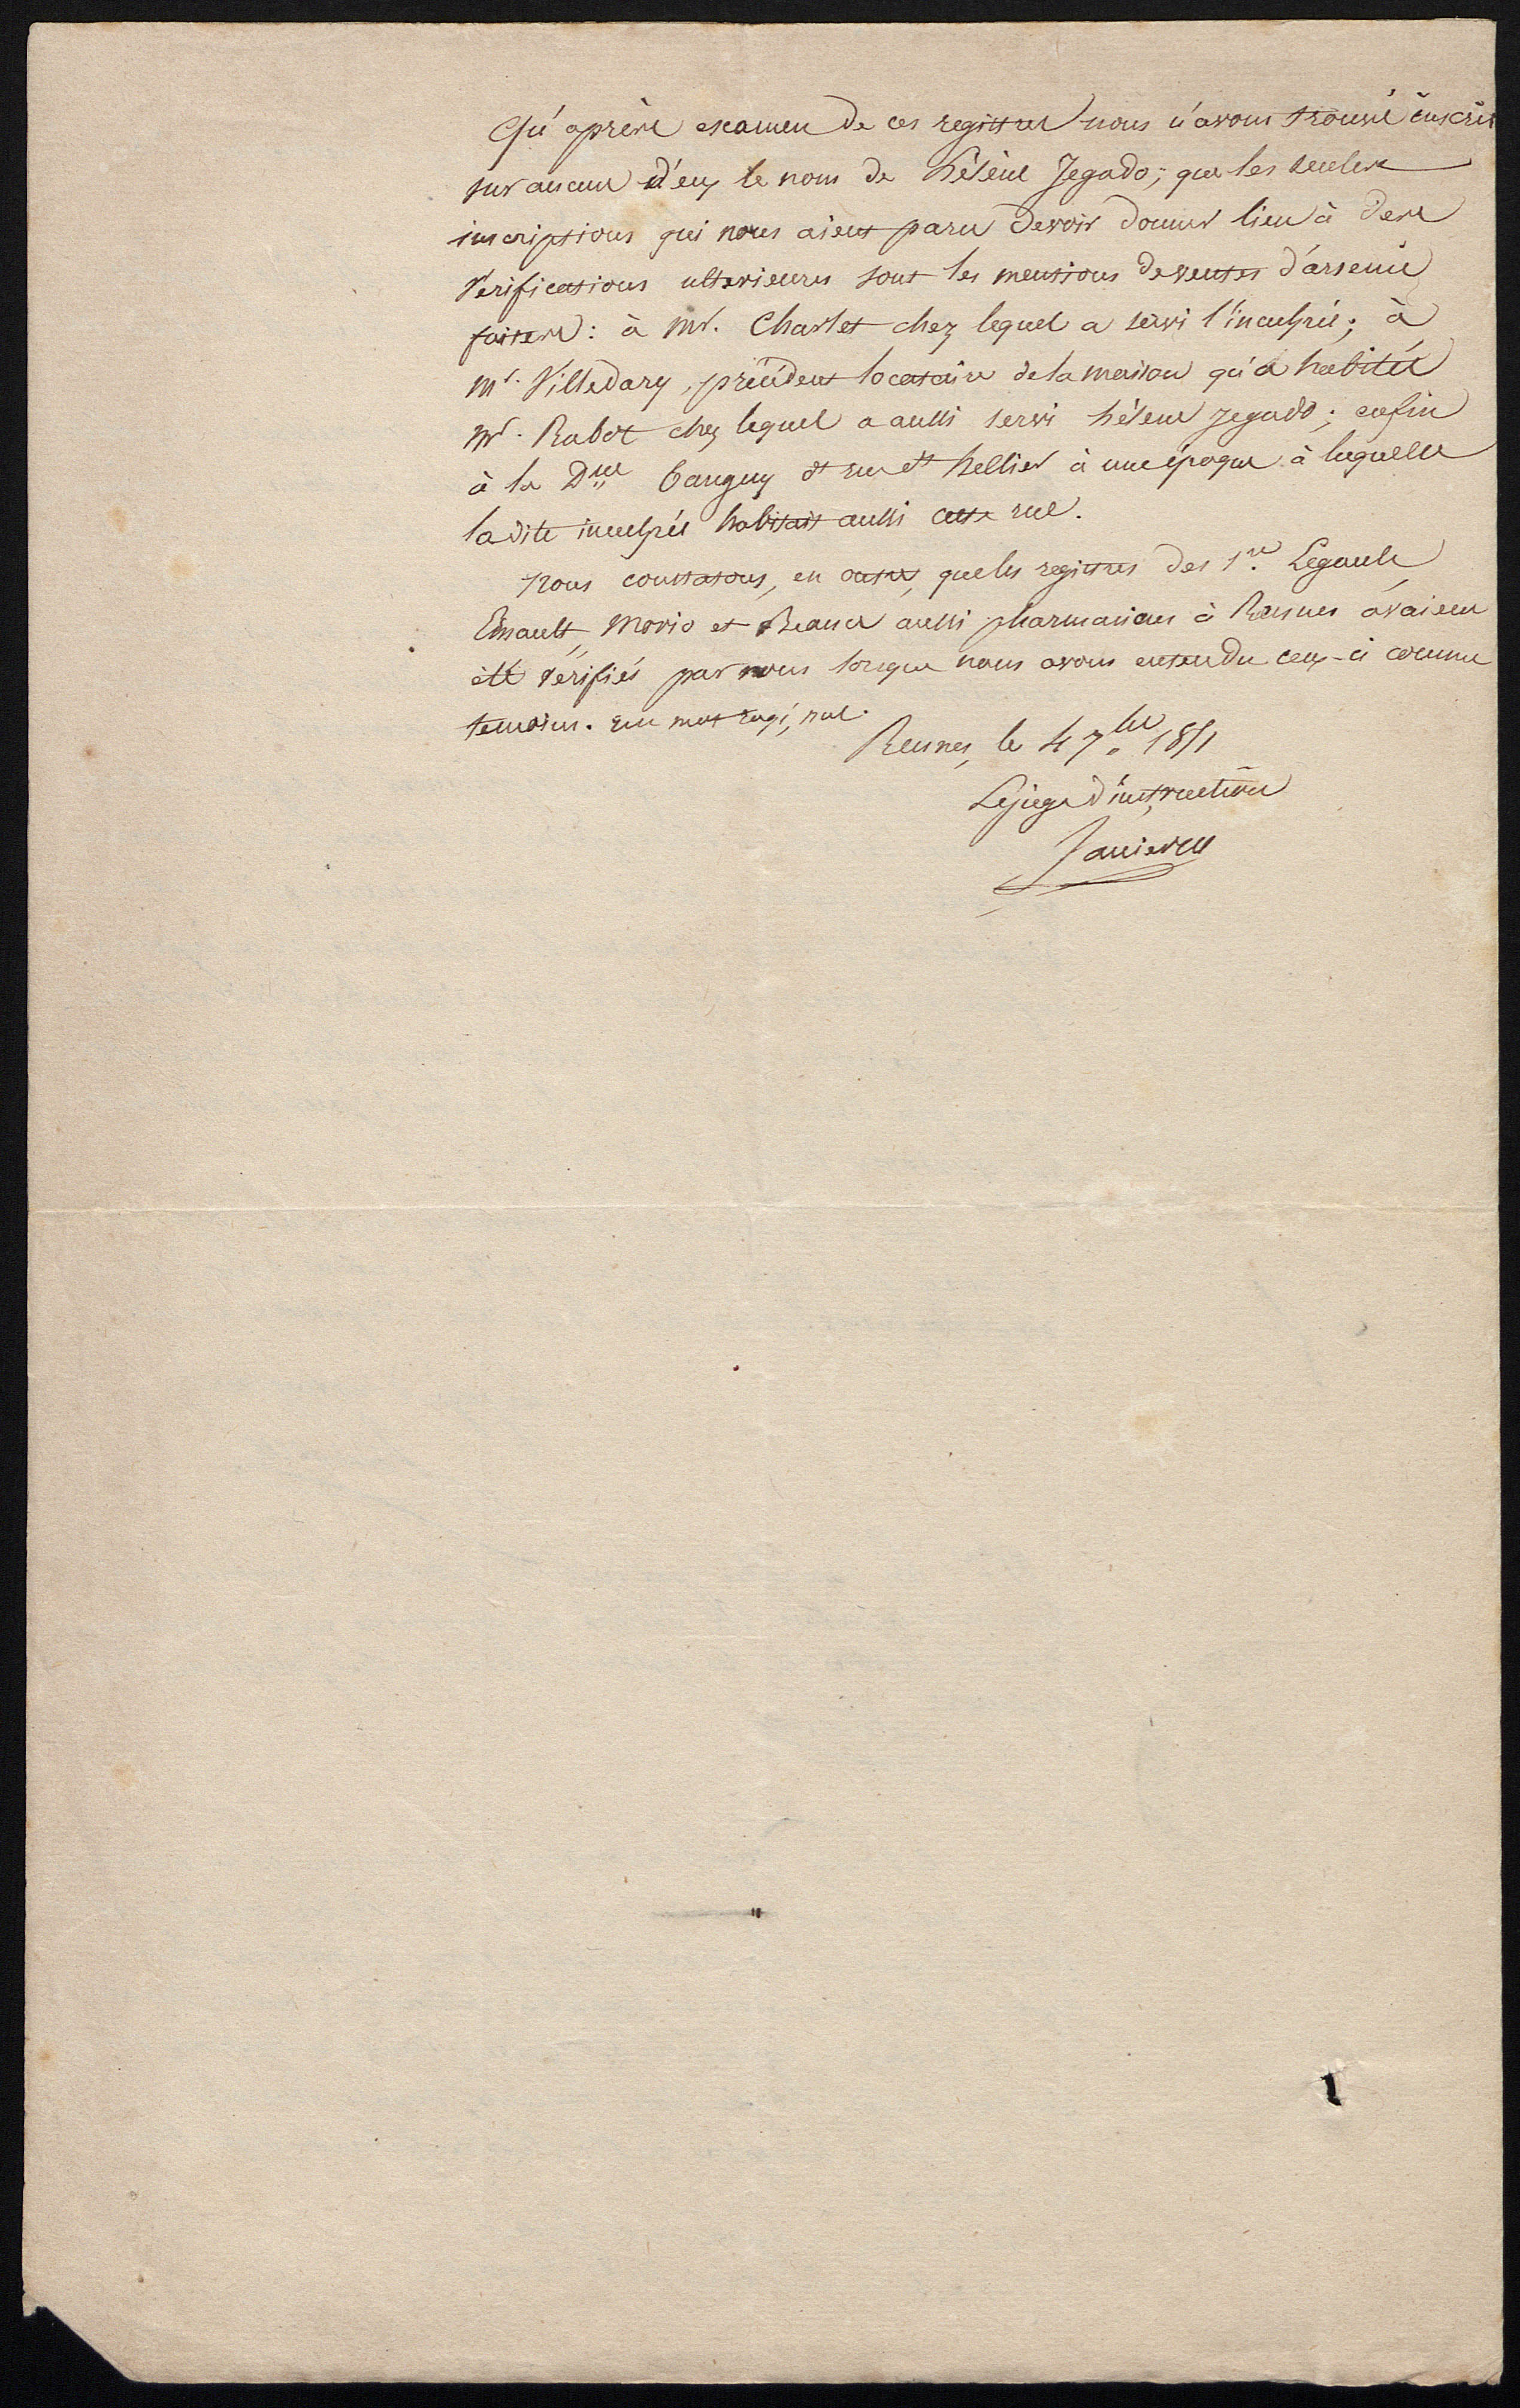 Qu'après examen de ces registres nous n'avons trouvé inscrit
sur aucun d'eux le nom de hélène Jegado; que les seules
inscriptions qui nous aient paru devoir donner lieu à des
vérifications ulterieures sont les mentions de ventes d'arsenic
faites: à Mr. Charlet chez lequel a servi l'inculpée; à
Mr. Villedary, précédent locataire de la maison qu'a habitée
Mr. Rabot chez lequel a aussi servi hélène Jegado; enfin
à la Dme Tanguy rue St hellier à une époque à laquelle
la dite inculpée habitait aussi cette rue.
Nous constatons, en outre, que les registres des Srs Legault
Esnault, Morio et aussi pharmaciens à Rennes avaient
été vérifiés par nous lorsque nous avons entendu ceux-ci comme
temoins. un mot rayé, nul.
Rennes, le 4 7bre 1851
Le juge d'instruction